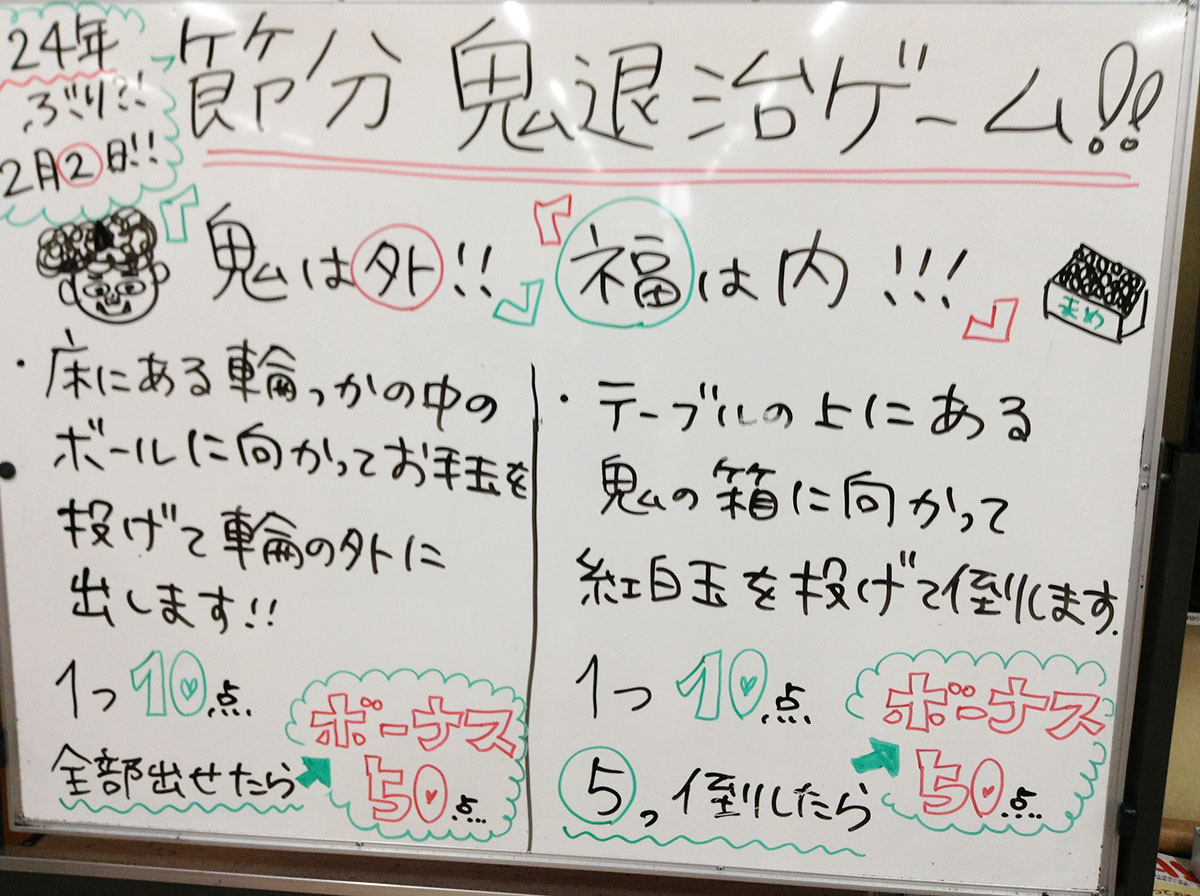 24年
ぶり?!
2月2日!!
節分 鬼退治ゲーム!!
『鬼は外!!』
『福は内!!!』
まめ
・床にある輪っかの中の
ボールに向かってお手玉を
投げて輪の外に
出します!!
1つ10点
全部出せたら
ボーナス
50点...
・テーブルの上にある
鬼の箱に向かって
紅白玉を投げて倒します.
1つ10点
5つ倒したら
ボーナス
50点...